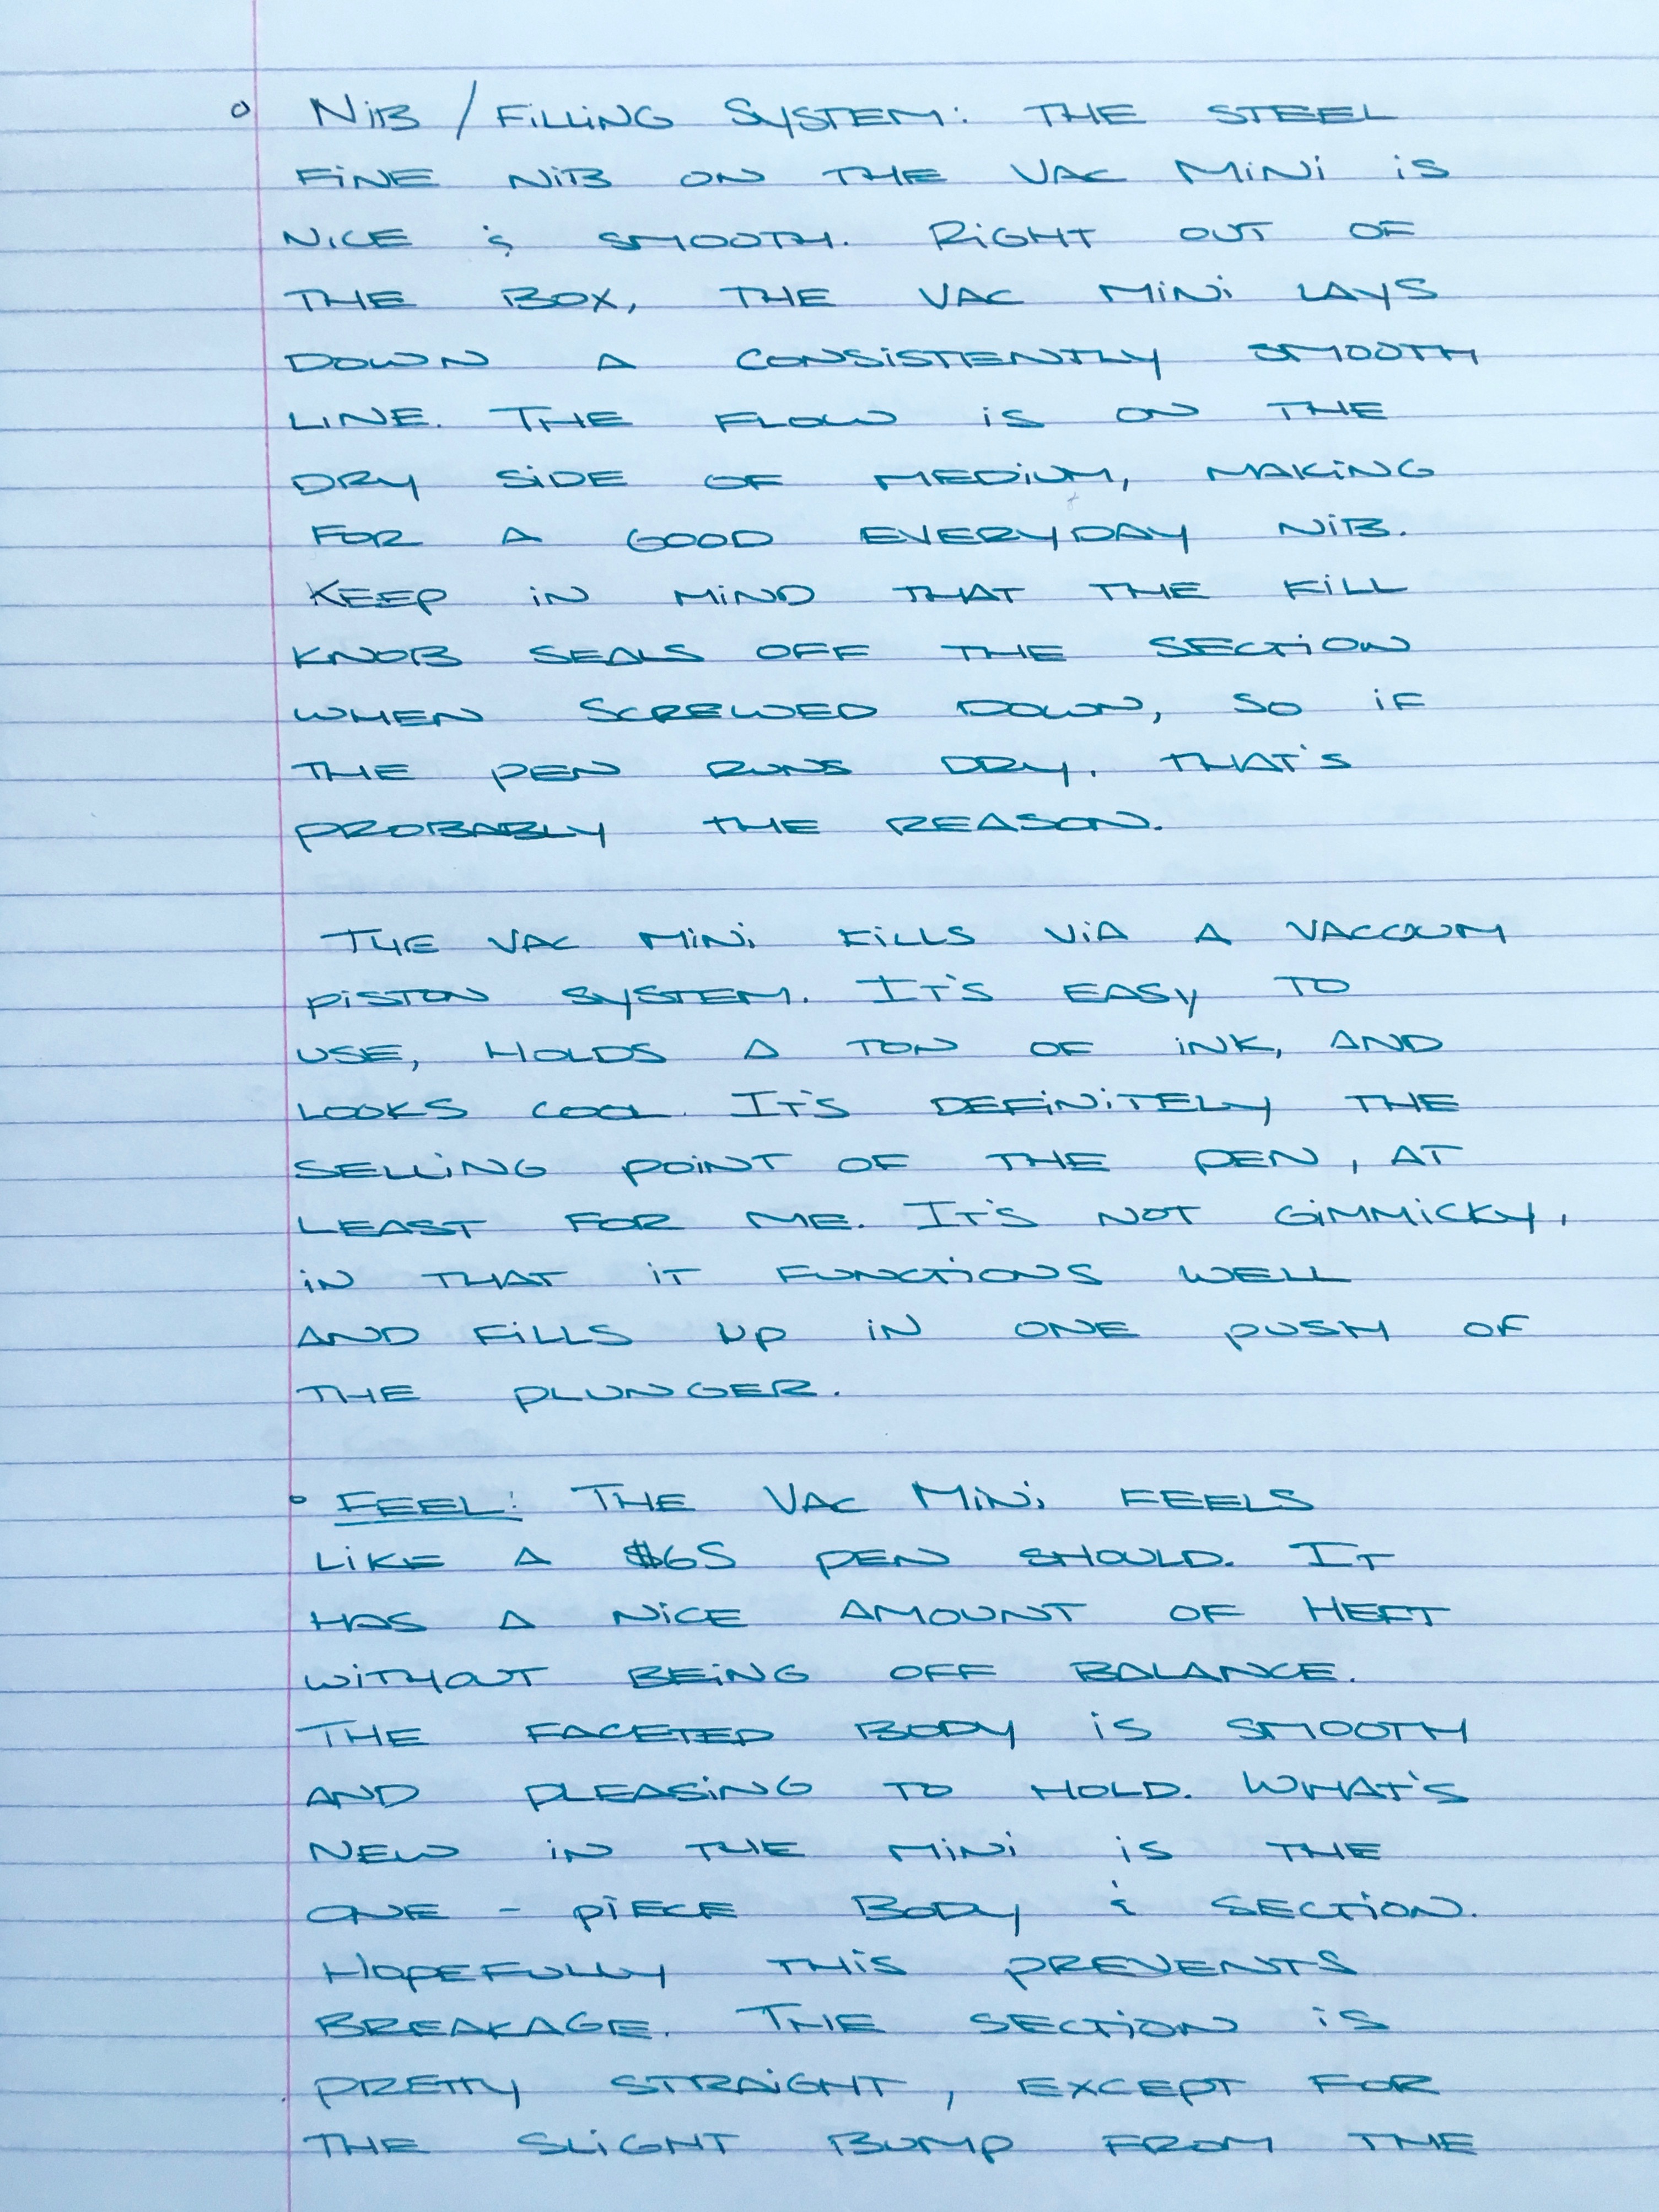 o NiB / FiLLiNG SYSTEM: THE STEEL
FiNE NiB ON THE VAC MiNi iS
NiCE & SMOOTH. RiGHT OUT OF
THE BOX, THE VAC MiNi LAYS
DOWN A CONSiSTIENTLY SMOOTH
LINE. THE FLOW iS ON THE
DRY SiDE OF MEDiUM, MAKiNG
FOR A GOOD EVERYDAY NiB.
KEEP iN MiND THAT THE FiLL
KNOB SEALS OFF THE SECTiON
WHEN SCREWED DOWN, SO iF
THE PEN RUNS DRY, THAT'S
PROBABLY THE REASON.
THE VAC MiNi FiLLS ViA A VACCUUM
PiSTON SYSTEM. IT'S EASY TO
USE, HOLDS A TON OF iNK, AND
LOOKS COOL. IT'S DEFiNiTELY THE
SELLiNG POiNT OF THE PEN, AT
LEAST FOR ME. IT'S NOT GiMMiCKY,
iN THAT iT FUNCTiONS WELL
AND FiLLS UP iN ONE PUSH OF
THE PLUNGER.
o FEEL: THE VAC MiNi FEELS
LiKE A $65 PEN SHOULD. IT
HAS A NiCE AMOUNT OF HEFT
WiTHOUT BEiNG OFF BALANCE.
THE FACETED BODY iS SMOOTH
AND PLEASiNG TO HOLD. WHAT'S
NEW iN THE MiNi iS THE
ONE - PiECE BODY & SECTiON.
HOPEFULLY THiS PREVENTS
BREAKAGE. THE SECTiON iS
PRETTY STRAiGHT, EXCEPT FOR
THE SLiGHT BUMP FROM THE